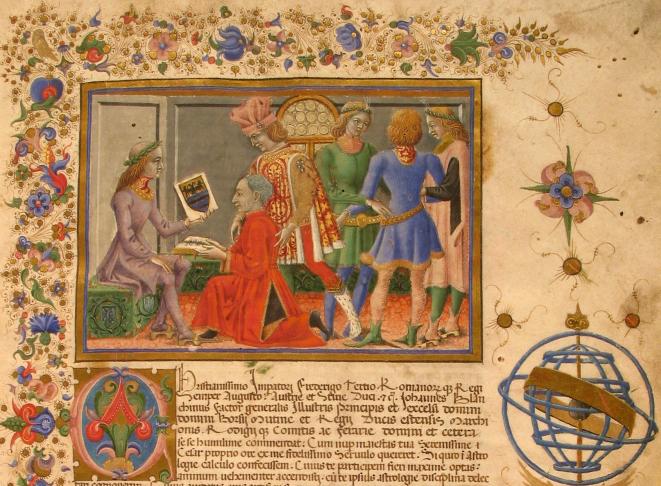 Christianissimo Imperatori Frederigo Tertio Romanorꝫ qꝫ Regi
Semper Augusto: Austrie et Stirie Duci ⁊ cͣ. Johannes Blan
chinus factor generalis Illustris principis et excelsi domini
domini Borsij Mutine et Regij Ducis estensis Marchi
onis Rodigij qꝫ Comitis ac ferarie domini et cetera
se se humilime commendat: Cum nup maiestas tua Serenissime ⁊
Cesar proprio ore ex me fidelissimo Servulo quereret. Si quid ī Astro
logie calculo confecissem. Cuius te participem fieri maxime optas:
animum vehementer accensisti: cū te ipsius astrologie disciplina delec
tari